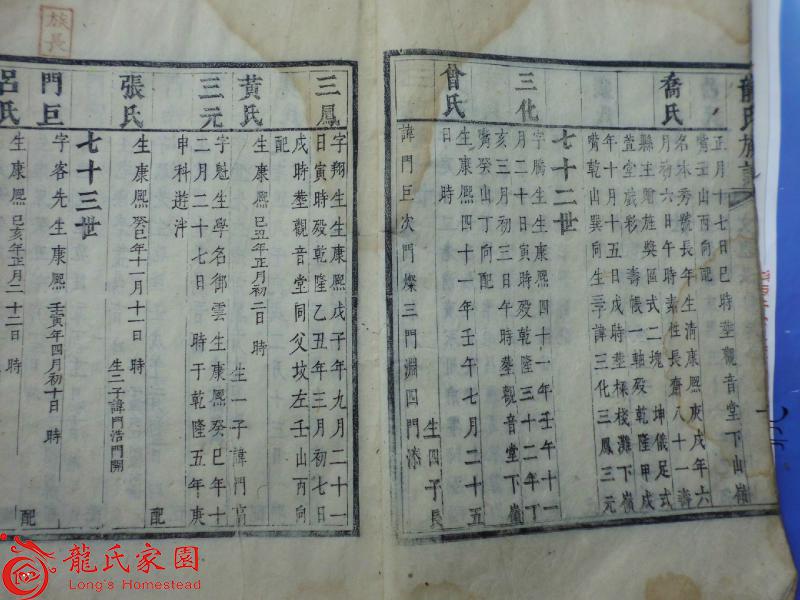 龍氏族譜
正月十七日巳時塟觀音堂下山嶺
嘴壬山丙向配
喬氏
名本秀號長年生清康熙庚戌年六
月初六日午時素性長齋八十一壽
縣主贈旌獎匾式二塊 坤儀足式
萱堂戲彩 壽帳一軸歿乾隆甲戌
年十月十五日戌時塟探棧灘下嶺
嘴乾山巽向生三子諱三化三鳳三元
七十二世
三化
字騰生生康熙四十一年壬午十一
月二十日寅時歿乾隆三十二年丁
亥三月初三日午時塟觀音堂下嶺
嘴癸山丁向配
曾氏
生康熙四十一年壬午七月二十五
日 時 生四子長
諱門巨次門燦三門淵四門添
三鳳
字翔生生康熙戊子年九月二十一
日寅時歿乾隆乙丑年三月初七日
戌時塟觀音堂同父坟左壬山丙向
配
黄氏
生康熙己丑年正月初二日 時
生一子諱門高
三元
字魁生學名御雲生康熙癸巳年十
二月二十七日 時于乾隆五年庚
申科遊泮 配
張氏
生康熙癸巳年十一月十一日 時
生二子諱門浩門開
七十三世
門巨
字客先生康熙壬寅年四月初十日 時
配
呂氏
生康熙己亥年正月二十二日 時
族長
龍氏家園
Long's Homestead